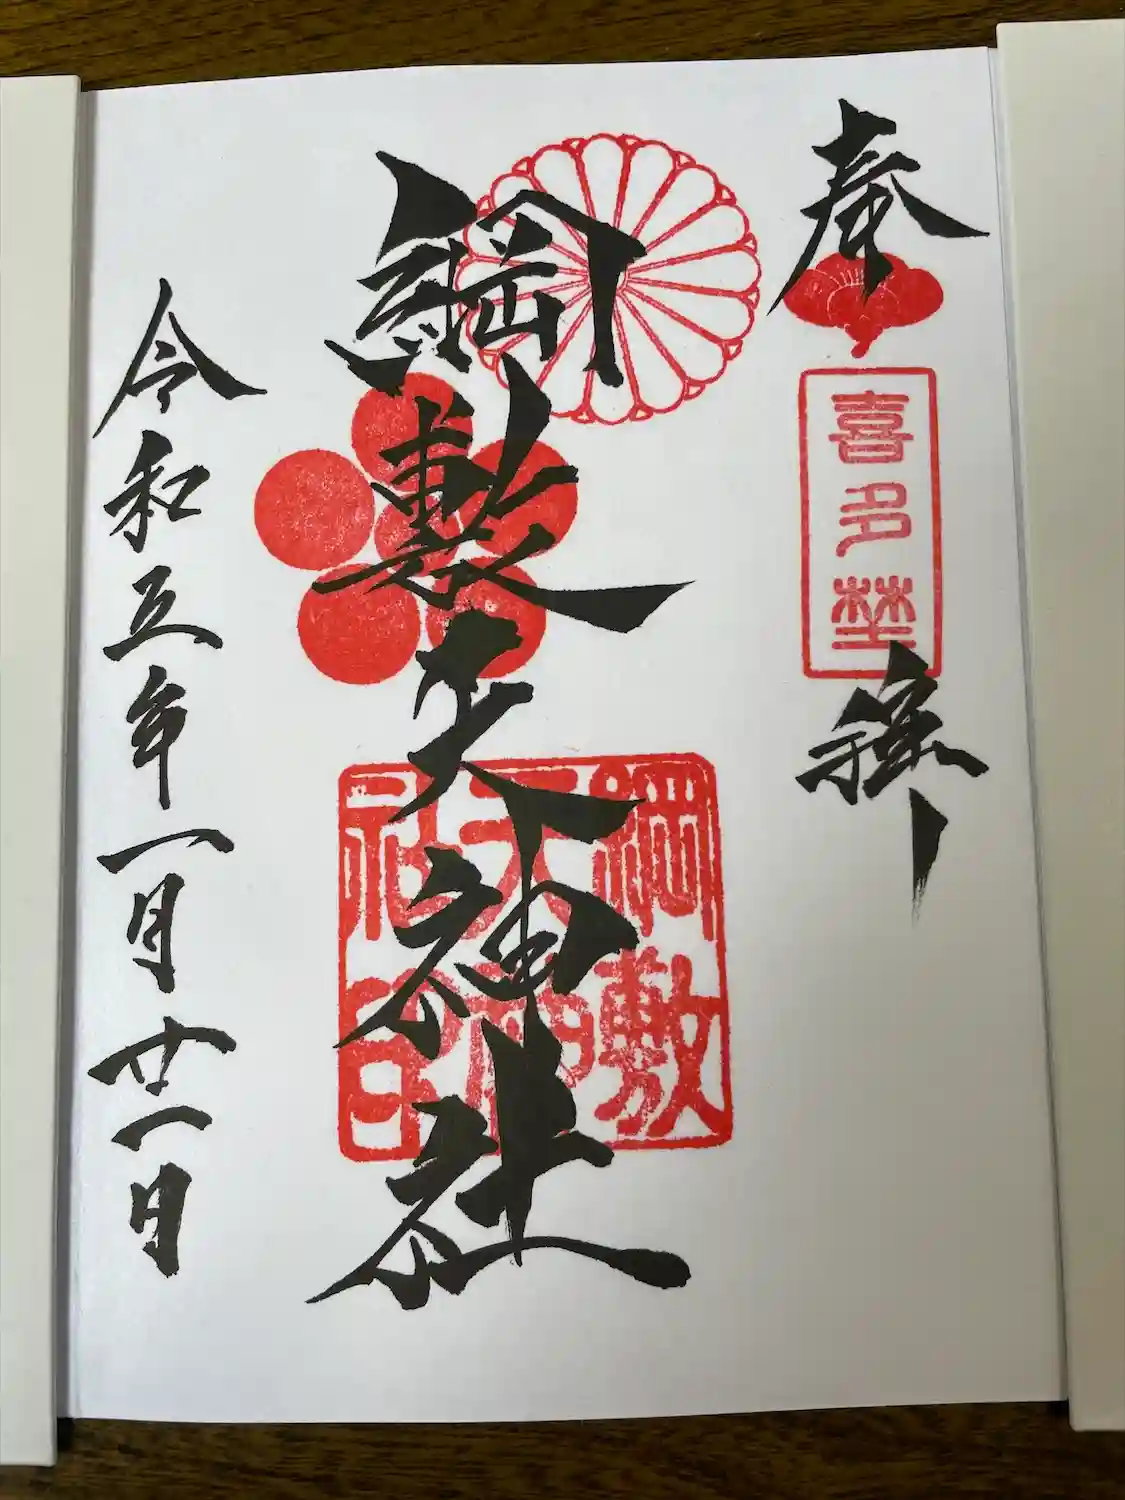 奉拝
喜多埜
綱敷天神社
綱敷
天神
社印
令和五年一月廿一日